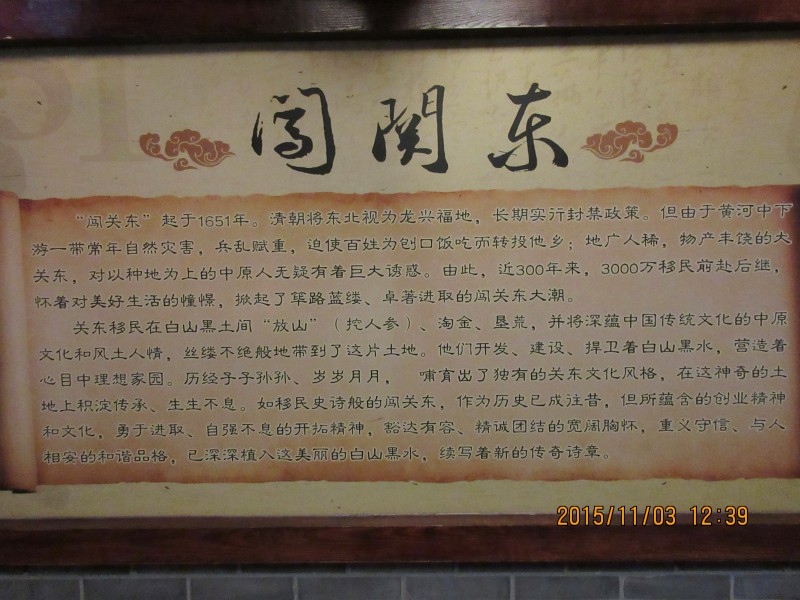 闯关东
“闯关东”起于1651年。清朝将东北视为龙兴福地，长期实行封禁政策。但由于黄河中下
游一带常年自然灾害，兵乱赋重，迫使百姓为刨口饭吃而转投他乡；地广人稀，物产丰饶的大
关东，对以种地为上的中原人无疑有着巨大诱惑。由此，近300年来，3000万移民前赴后继，
怀着对美好生活的憧憬，掀起了筚路蓝缕、卓著进取的闯关东大潮。
关东移民在白山黑土间“放山”（挖人参）、淘金、垦荒，并将深蕴中国传统文化的中原
文化和风土人情，丝缕不绝般地带到了这片土地。他们开发、建设、捍卫着白山黑水，营造着
心目中理想家园。历经子子孙孙、岁岁月月， 哺育出了独有的关东文化风格，在这神奇的土
地上积淀传承、生生不息。如移民史诗般的闯关东，作为历史已成往昔，但所蕴含的创业精神
和文化，勇于进取、自强不息的开拓精神，豁达有容、精诚团结的宽阔胸怀，重义守信、与人
相安的和谐品格，已深深植入这美丽的白山黑水，续写着新的传奇诗章。
2015/11/03 12:39